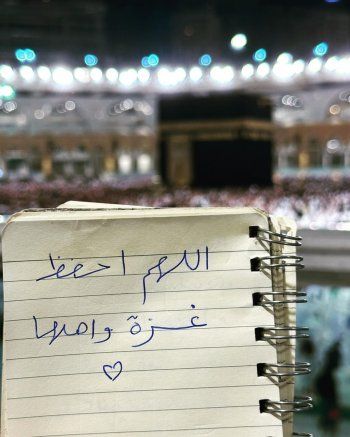 اللهم احفظ
غزة واهلها
♡